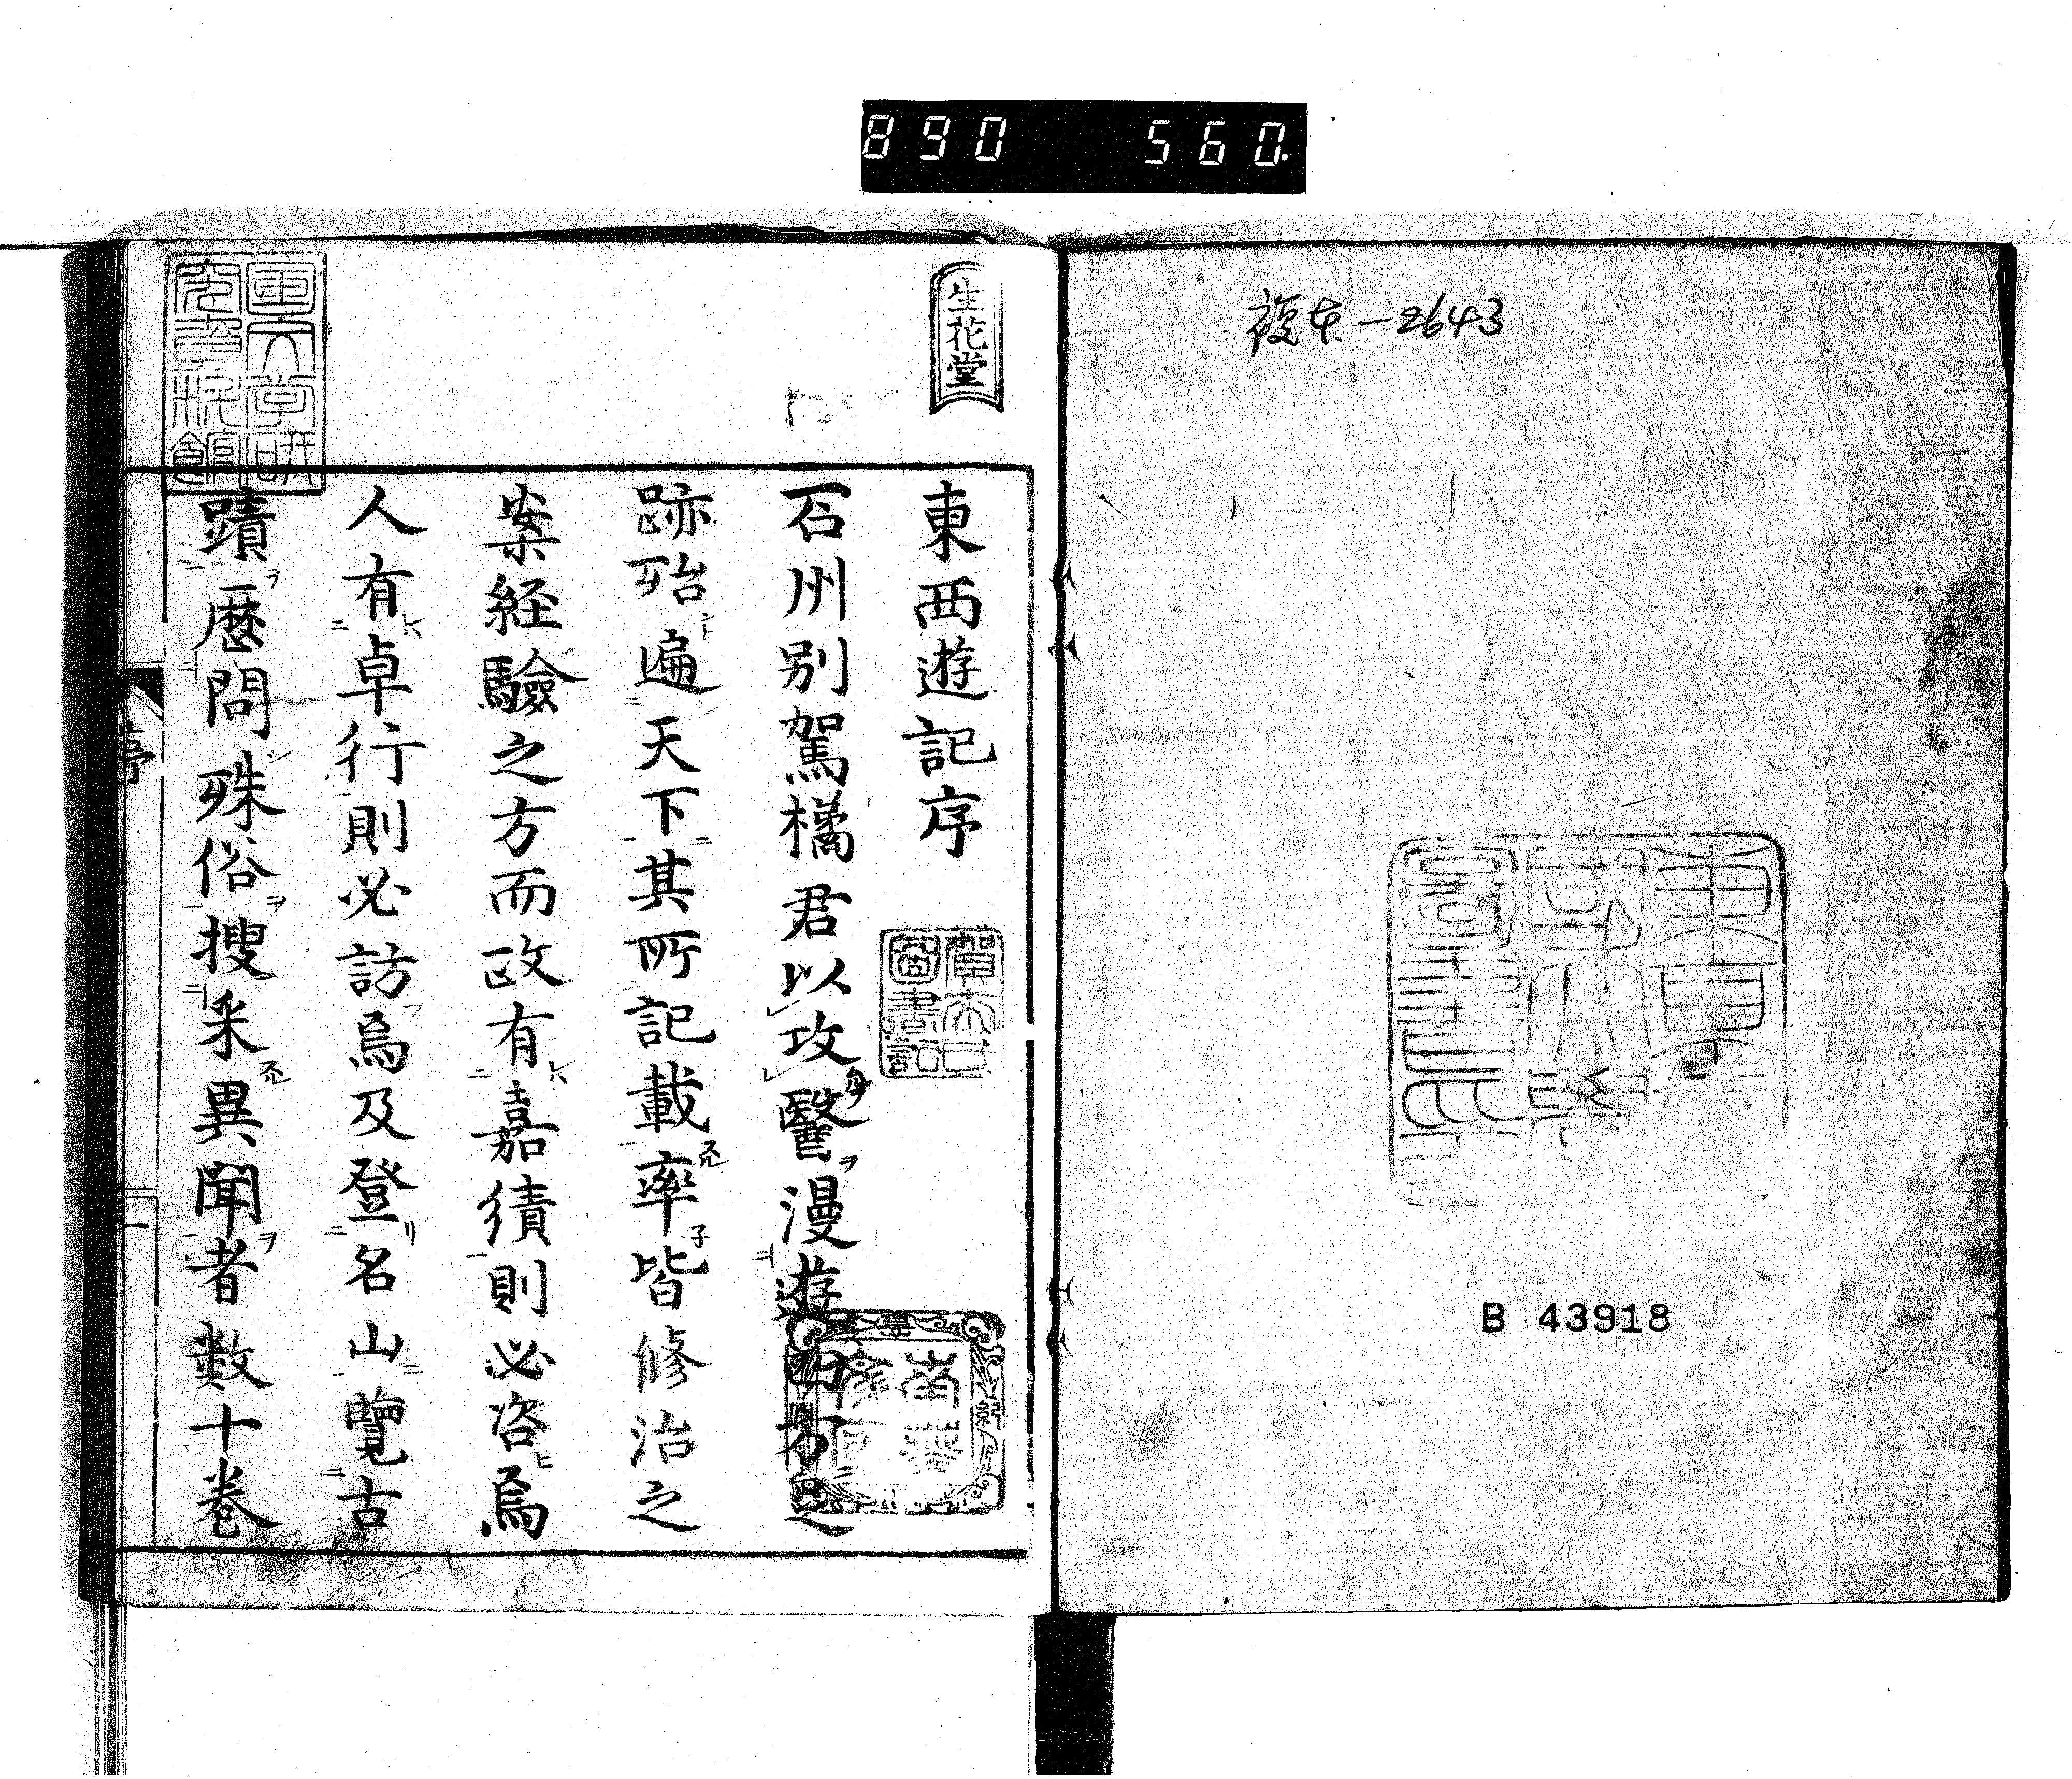 890 560.
複本-2643
B 43918
生花堂
東西遊記序
石州別駕橘君以攻醫漫遊四方足
跡殆遍天下其所記載率皆修治之
案経驗之方而政有嘉績則必咨焉
人有卓行則必訪焉及登名山覽古
蹟歷問殊俗搜采異聞者數十卷
序
一